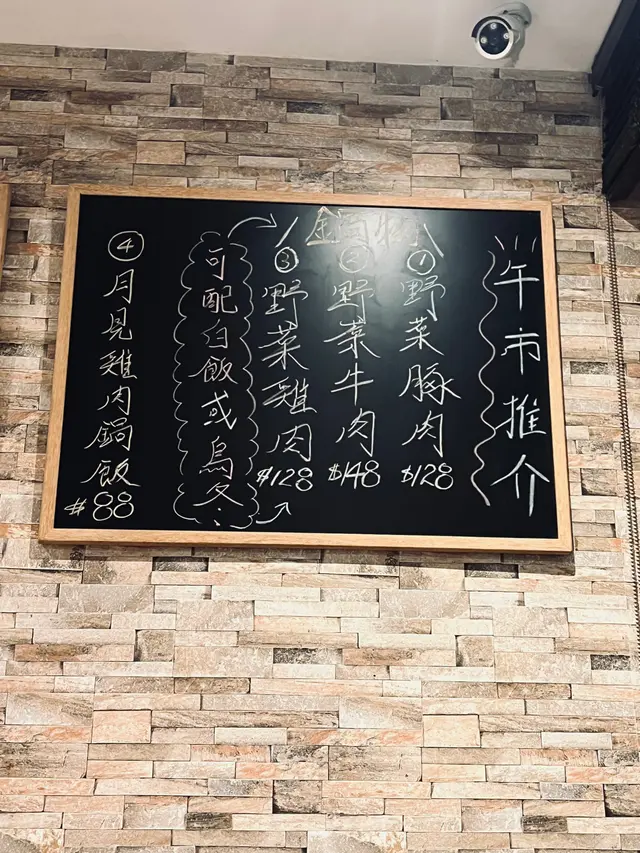 午市推介
鍋物
①野菜豚肉
$128
②野菜牛肉
$148
③野菜雞肉
$128
可配白飯或烏冬
④月見雞肉鍋飯
$88